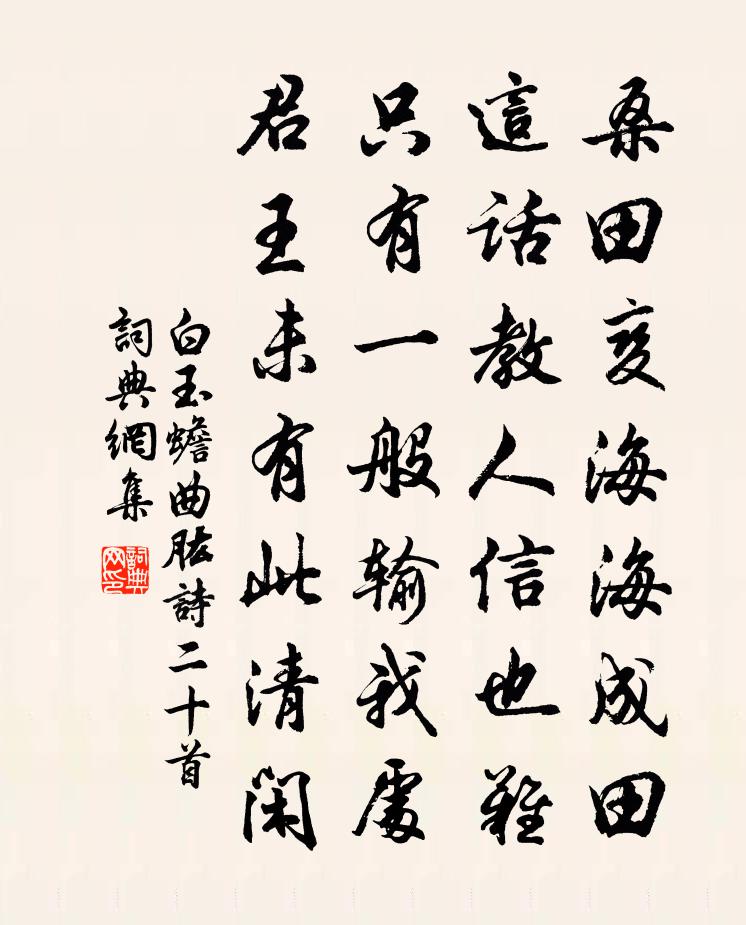 桑田变海海成田
這话教人信也難
只有一般输我處
君王未有此清闲
白玉蟾曲肱詩二十首
詞典網集
詞典网印